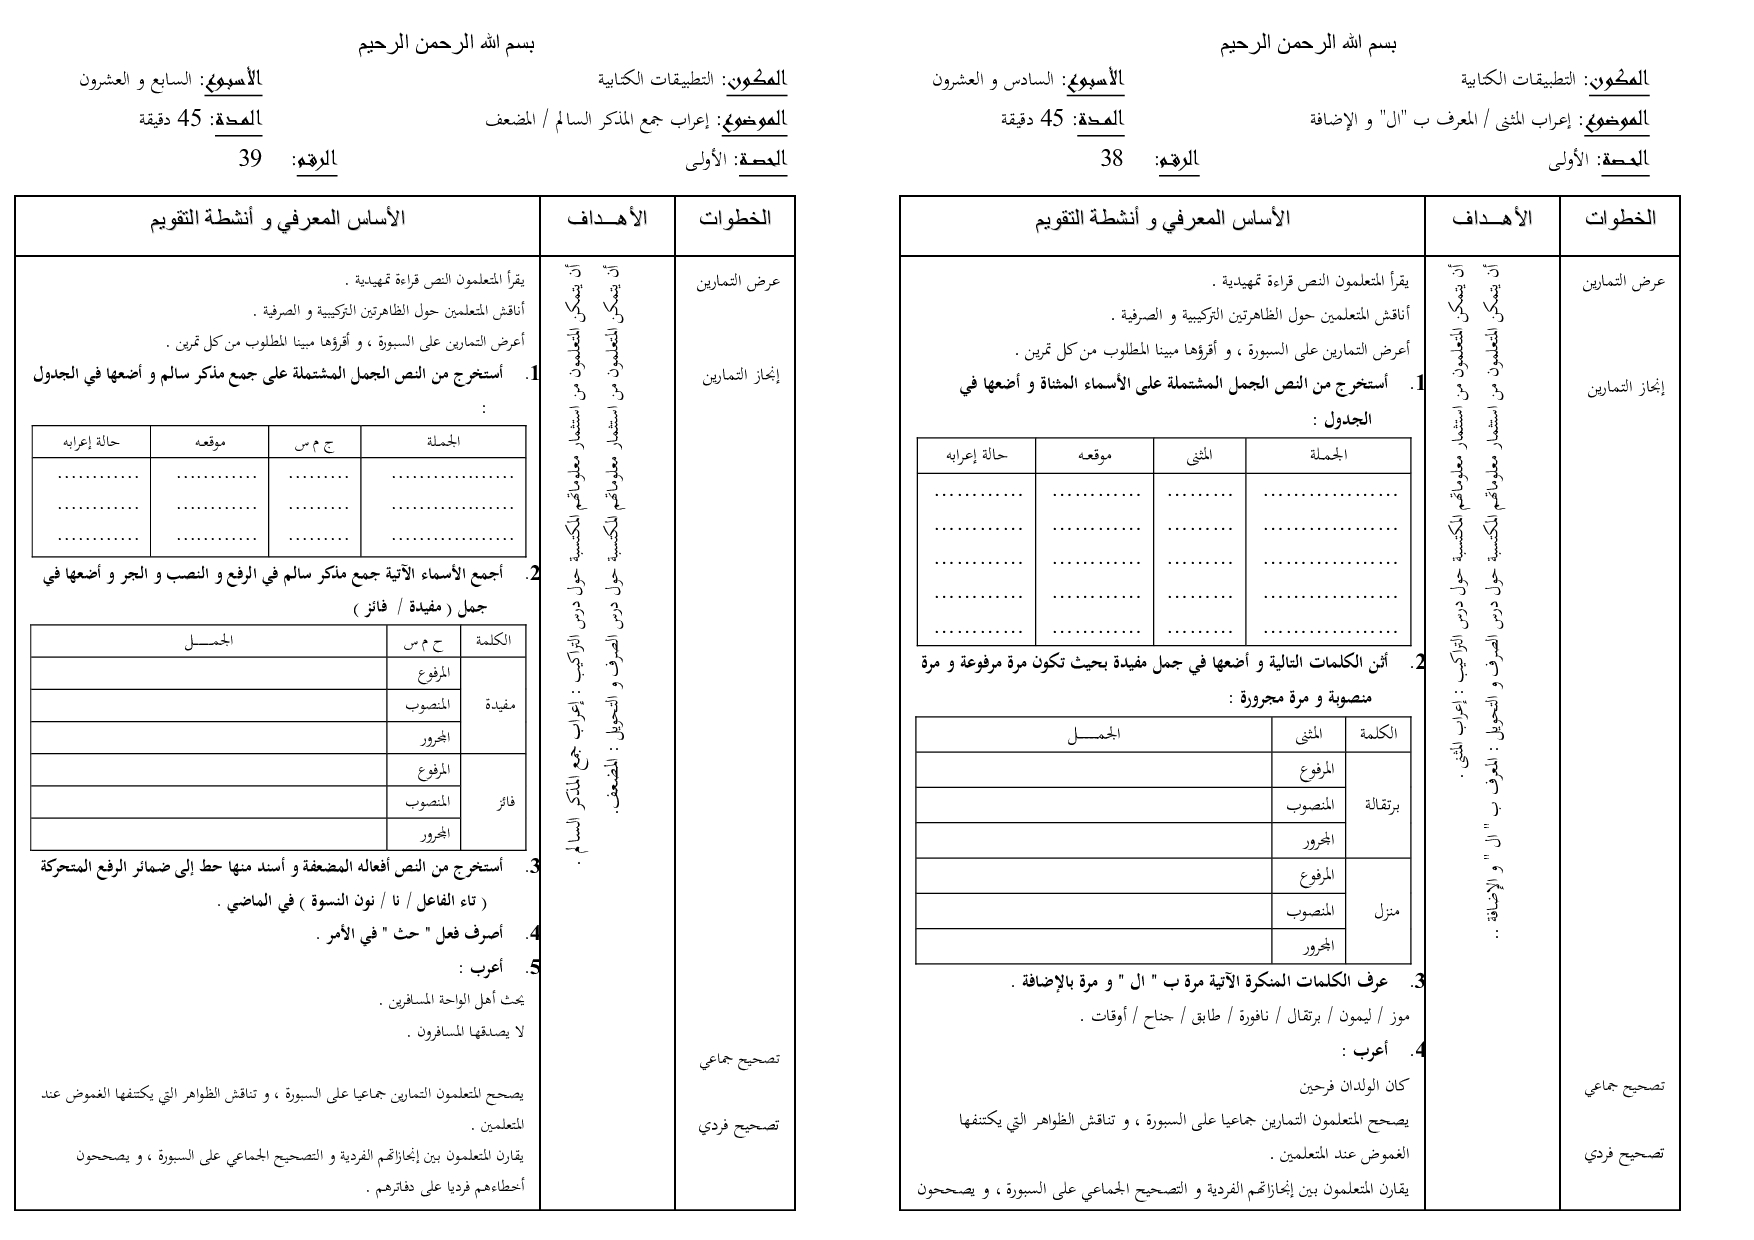 بسم الله الرحمن الرحيم
المكون: التطبيقات الكتابية الأسبوع: السادس و العشرون
الموضوع: إعراب المثنى / المعرف ب "ال" و الإضافة المدة: 45 دقيقة
الحصة: الأولى الرقم: 38
الخطوات الأهـــداف الأساس المعرفي و أنشطة التقويم
عرض التمارين
إنجاز التمارين
تصحيح جماعي
تصحيح فردي
أن يتمكن المتعلمون من استثمار معلوماتهم المكتسبة حول درس الصرف و التحويل : المعرف ب " ال " و الإضافة ..
أن يتمكن المتعلمون من استثمار معلوماتهم المكتسبة حول درس التراكيب : إعراب المثنى .
يقرأ المتعلمون النص قراءة تمهيدية .
أناقش المتعلمين حول الظاهرتين التركيبية و الصرفية .
أعرض التمارين على السبورة ، و أقرؤها مبينا المطلوب من كل تمرين .
1. أستخرج من النص الجمل المشتملة على الأسماء المثناة و أضعها في
الجدول :
الجملة المثنى موقعه حالة إعرابه
.................. ......... ............ ............
.................. ......... ............ ............
.................. ......... ............ ............
.................. ......... ............ ............
.................. ......... ............ ............
2. أثن الكلمات التالية و أضعها في جمل مفيدة بحيث تكون مرة مرفوعة و مرة
منصوبة و مرة مجرورة :
الكلمة المثنى الجمـــــل
برتقالة
المرفوع
المنصوب
المجرور
منزل
المرفوع
المنصوب
المجرور
3. عرف الكلمات المنكرة الآتية مرة ب " ال " و مرة بالإضافة .
موز / ليمون / برتقال / نافورة / طابق / جناح / أوقات .
4. أعرب :
كان الولدان فرحين
يصحح المتعلمون التمارين جماعيا على السبورة ، و تناقش الظواهر التي يكتنفها
الغموض عند المتعلمين .
يقارن المتعلمون بين إنجازاتهم الفردية و التصحيح الجماعي على السبورة ، و يصححون
بسم الله الرحمن الرحيم
المكون: التطبيقات الكتابية الأسبوع: السابع و العشرون
الموضوع: إعراب جمع المذكر السالم / المضعف المدة: 45 دقيقة
الحصة: الأولى الرقم: 39
الخطوات الأهـــداف الأساس المعرفي و أنشطة التقويم
عرض التمارين
إنجاز التمارين
تصحيح جماعي
تصحيح فردي
أن يتمكن المتعلمون من استثمار معلوماتهم المكتسبة حول درس الصرف و التحويل : المضعف.
أن يتمكن المتعلمون من استثمار معلوماتهم المكتسبة حول درس التراكيب : إعراب جمع المذكر السالم .
يقرأ المتعلمون النص قراءة تمهيدية .
أناقش المتعلمين حول الظاهرتين التركيبية و الصرفية .
أعرض التمارين على السبورة ، و أقرؤها مبينا المطلوب من كل تمرين .
1. أستخرج من النص الجمل المشتملة على جمع مذكر سالم و أضعها في الجدول
:
الجملة ج م س موقعه حالة إعرابه
.................. ......... ............ ............
.................. ......... ............ ............
.................. ......... ............ ............
2. أجمع الأسماء الآتية جمع مذكر سالم في الرفع و النصب و الجر و أضعها في
جمل ( مفيدة / فائز )
الكلمة ح م س الجمـــــل
مفيدة
المرفوع
المنصوب
المجرور
فائز
المرفوع
المنصوب
المجرور
3. أستخرج من النص أفعاله المضعفة و أسند منها حط إلى ضمائر الرفع المتحركة
( تاء الفاعل / نا / نون النسوة ) في الماضي .
4. أصرف فعل " حث " في الأمر .
5. أعرب :
يحث أهل الواحة المسافرين .
لا يصدقها المسافرون .
يصحح المتعلمون التمارين جماعيا على السبورة ، و تناقش الظواهر التي يكتنفها الغموض عند
المتعلمين .
يقارن المتعلمون بين إنجازاتهم الفردية و التصحيح الجماعي على السبورة ، و يصححون
أخطاءهم فرديا على دفاترهم .